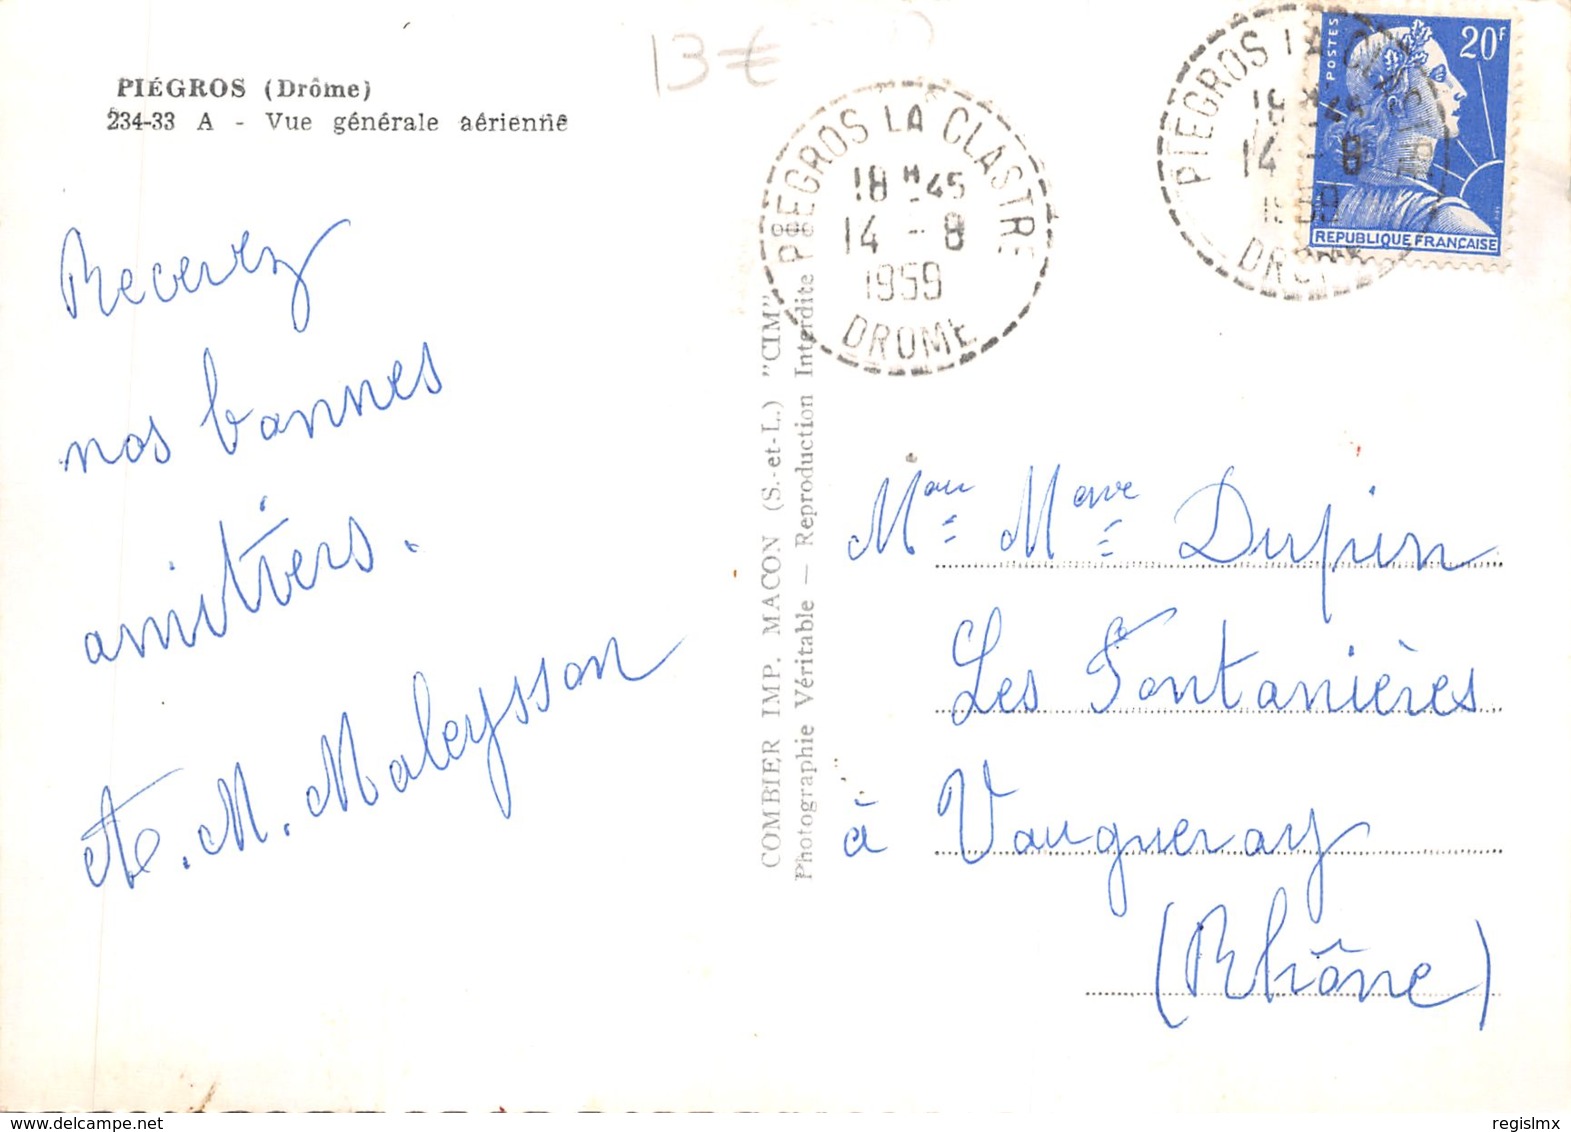 PIÉGROS (Drôme)
234-33 A - Vue générale aérienne
13 €
Recevez
nos bonnes
amitiers.
A. M. Maleysson
COMBIER IMP. MACON (S.-et-L.) "CIM"
Photographie Véritable — Reproduction Interdite
PIEGROS LA CLASTRE
18 H 45
14 - 8
1959
DROME
PIEGROS LA CLASTRE
18 H 45
14 - 8
1959
DROME
POSTES
20F
REPUBLIQUE FRANÇAISE
Dupin
Les Fontanières
à Vaugneray
(Rhône)
regislmx
www.delcampe.net